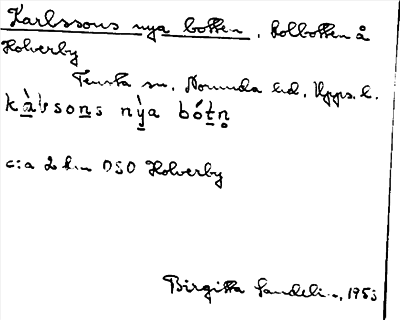 Karlssons nya botten, kolbotten å
Holverby
Tensta sn, Norunda hd, Upps. l.
kàḷsons nỳa bótn̥
c:a 2 km OSO Holverby
Birgitta Sandelin, 1953